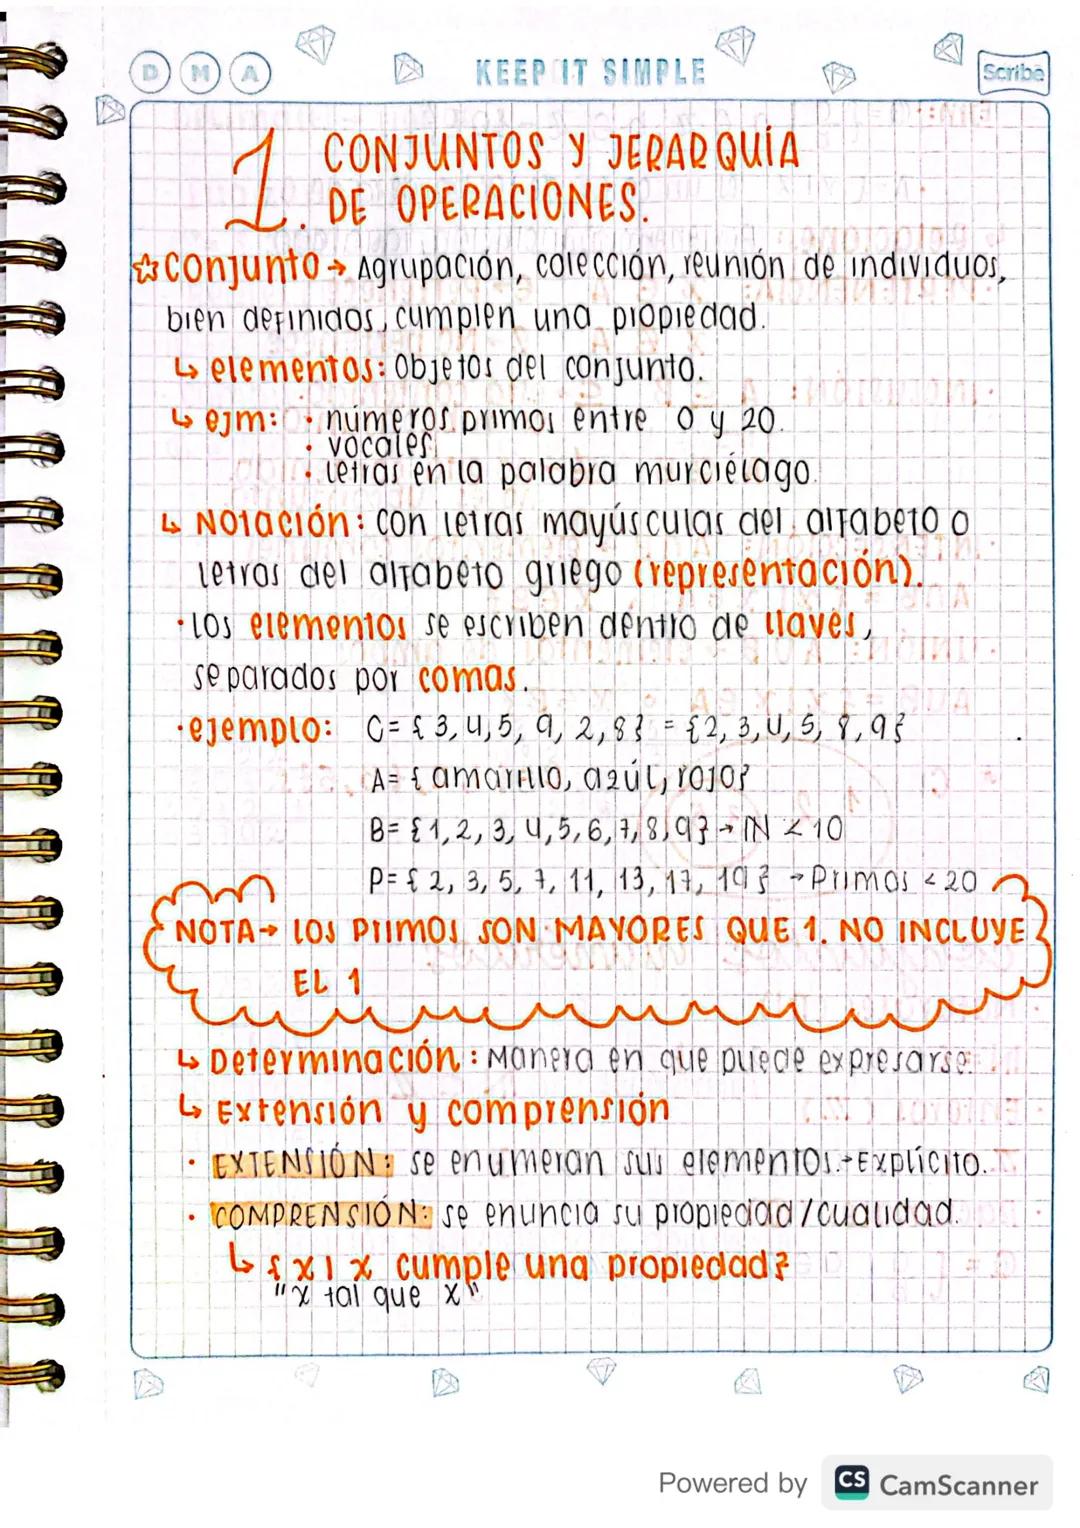 D M A KEEP IT SIMPLE Scribe
1. CONJUNTOS Y JERARQUÍA
DE OPERACIONES.
☆ Conjunto → Agrupación, colección, reunión de individuos,
bien definidos, cumplen una propiedad.
↳ elementos: Objetos del conjunto.
↳ ejm: · números primos entre 0 y 20.
· vocales
· letras en la palabra murciélago.
↳ Notación: con letras mayúsculas del alfabeto o
letras del alfabeto griego (representación).
· Los elementos se escriben dentro de llaves,
separados por comas.
· ejemplo: C= {3,4,5, 9, 2,8} = {2, 3,4, 5, 8,9}
A= {amarillo, azúl, rojo}
B= {1,2,3,4,5,6,7,8,9} → ℕ < 10
P= {2, 3, 5, 7, 11, 13, 17, 19} → Primos < 20
NOTA → LOS PRIMOS SON MAYORES QUE 1. NO INCLUYE
EL 1
↳ Determinación: Manera en que puede expresarse.
↳ Extensión y comprensión
· EXTENSIÓN: se enumeran sus elementos. → Explícito.
· COMPRENSIÓN: se enuncia su propiedad/cualidad.
↳ {x | x cumple una propiedad}
"x tal que x"
Powered by CS CamScanner